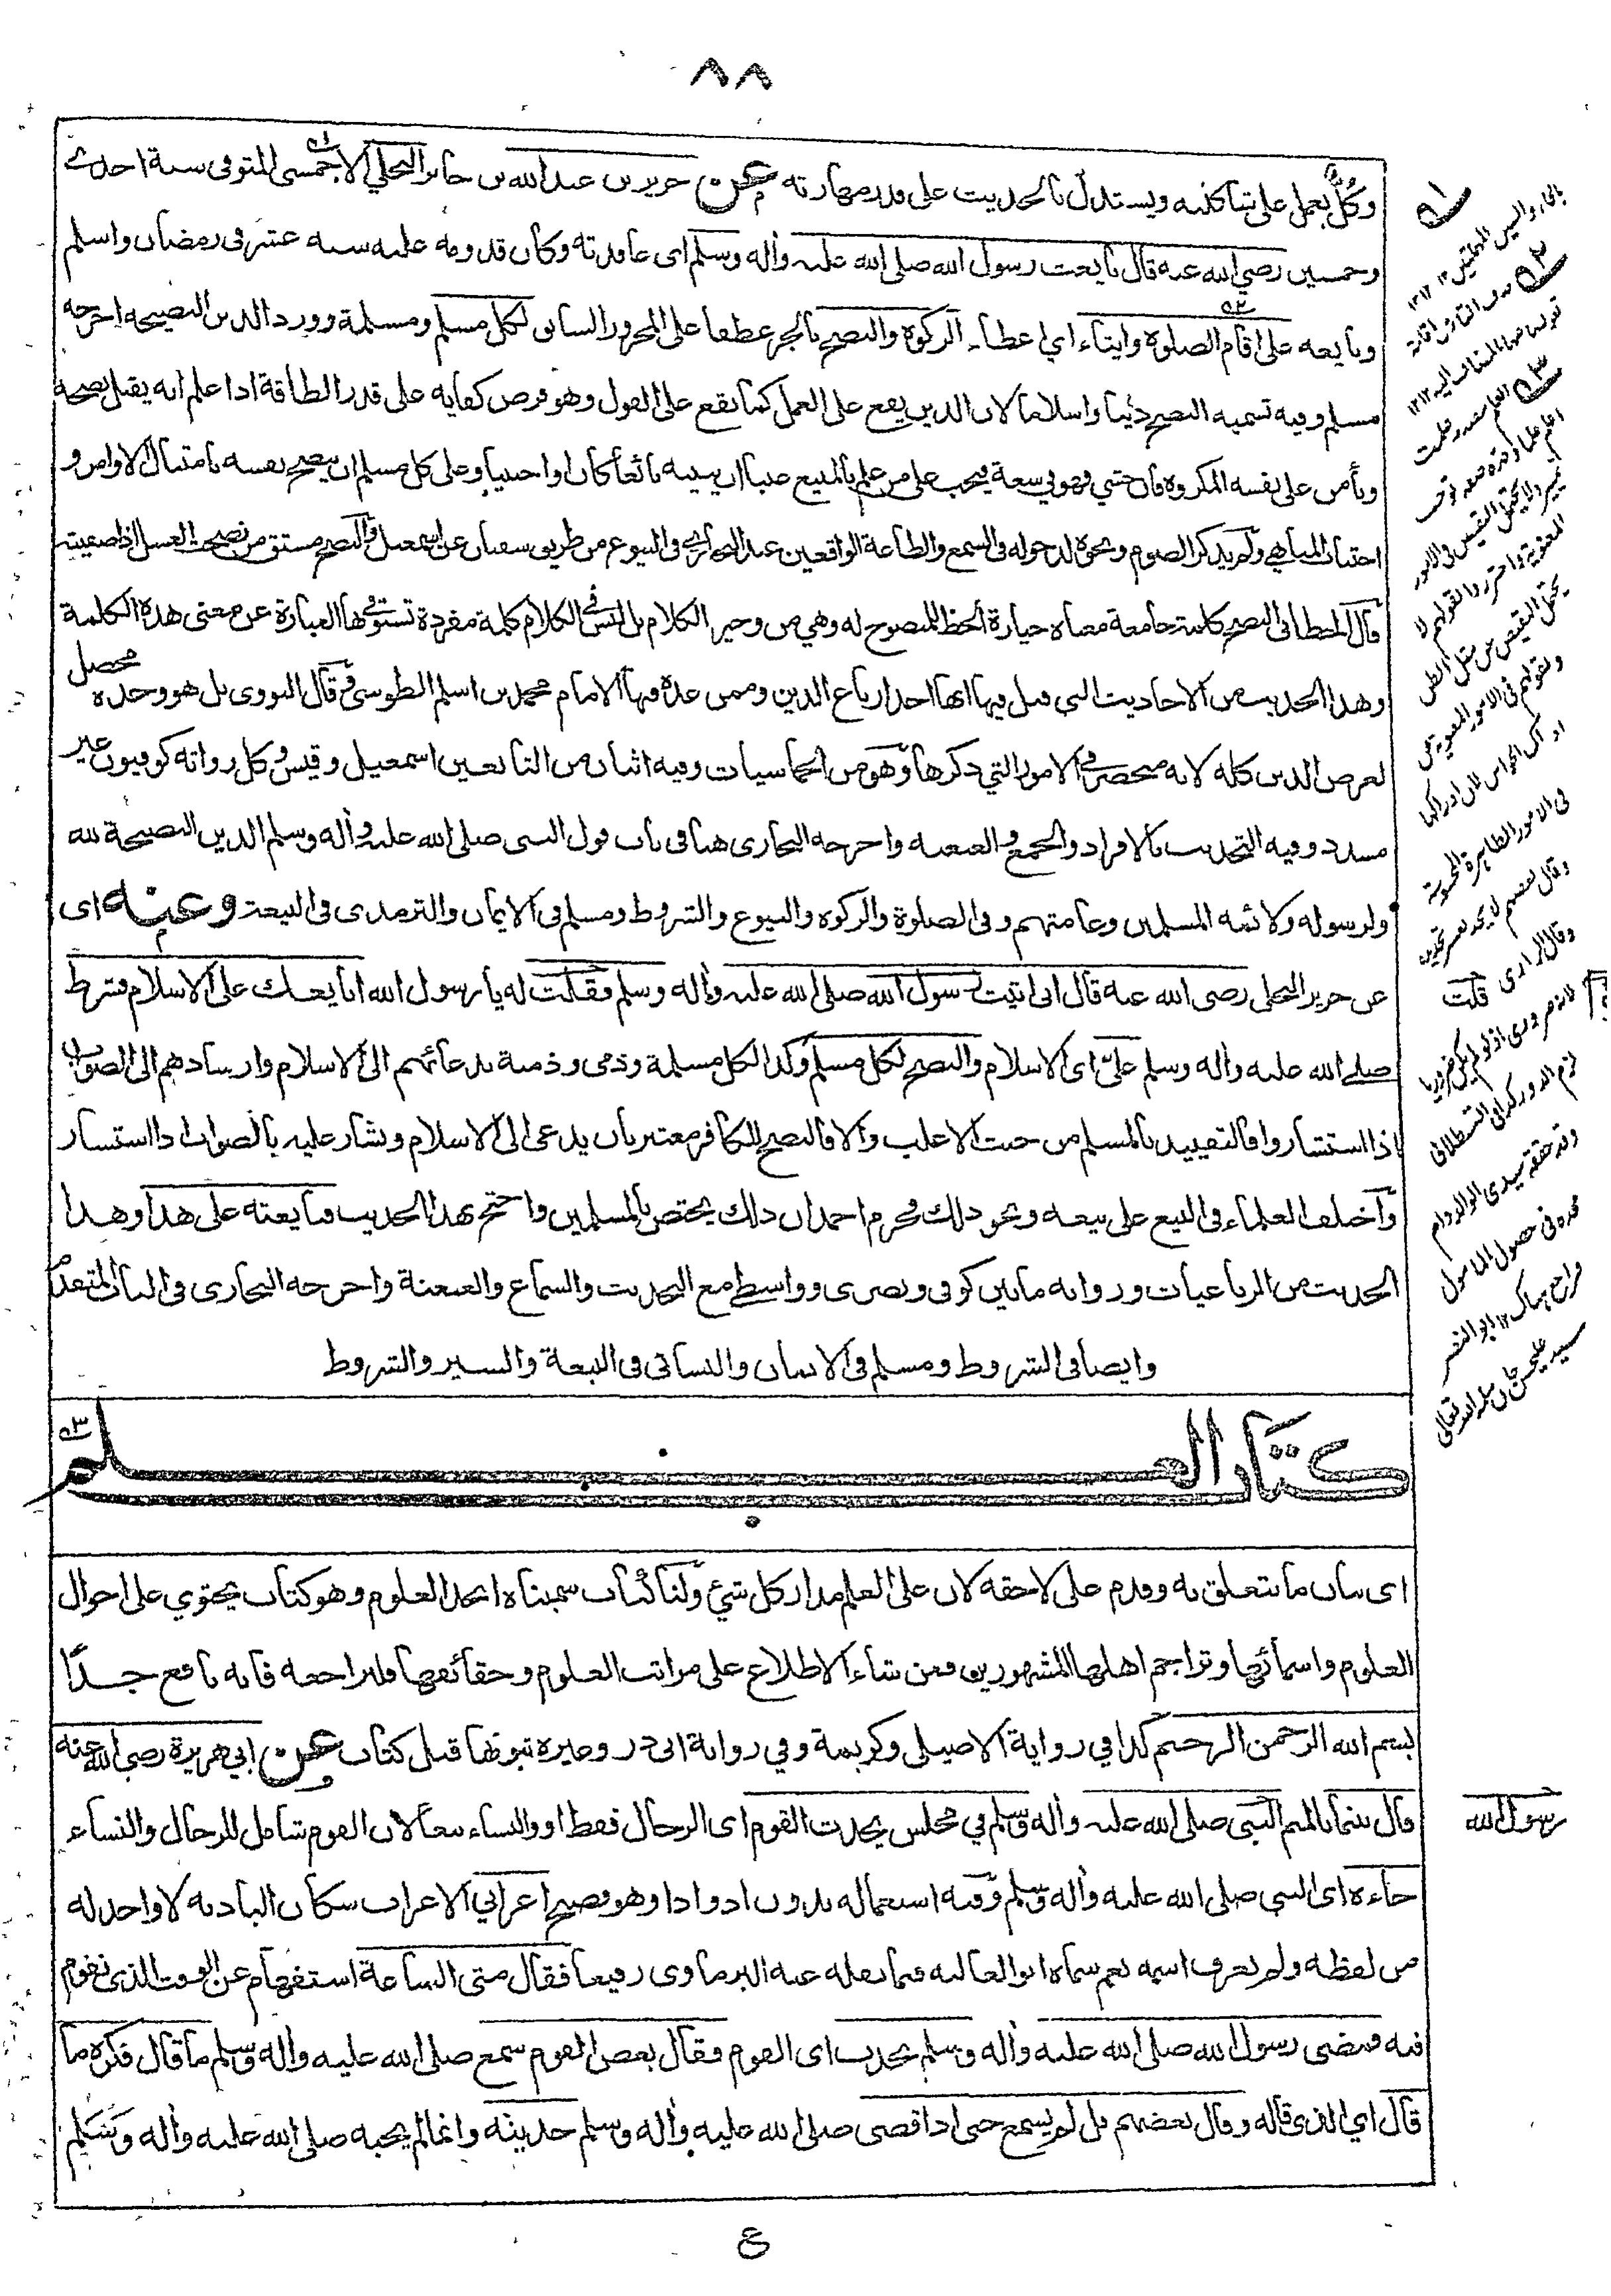 ٨٨
وكلٌّ يعمل على شاكلته ويستدل بالحديث على قدر مهارته عن جرير بن عبد الله بن جابر البجلي الاحمسى المتوفى سنة احدى
وخمسين رضي الله عنه قال بايعت رسول الله صلى الله عليه وأله وسلم اى عاقدته وكان قدومه عليه سنه عشر فى رمضان واسلم
وبايعه على اقام الصلوة وايتاء اي اعطاء الزكوة والنصح بالجر عطفا على المجرور السابق لكل مسلم ومسلمة وورد الدين النصيحه اخرجه
مسلم وفيه تسميه النصح دينا واسلاما لان الدين يقع على العمل كما يقع على القول وهو فرض كفايه على قدر الطاقة اذا علم انه يقبل نصحه
ويأمن على نفسه المكروه فان خشي فهو في سعة فيجب على من علم بالمبيع عيبا ان يبينه بائعا كان او اجنبيا وعلى كل مسلم ان ينصح نفسه بامتثال الاوامر و
اجتناب المناهي ولم يذكر الصوم ونحوه لدخوله فى السمع والطاعة الواقعين عند البخاري فى البيوع من طريق سفيان عن اسمعيل والنصح مشتق من نصحت العسل اذا صفيته
قال الخطابى النصح كلمة جامعة معناه حيازة الحظ للمنصوح له وهي من وجيز الكلام بل ليس فى الكلام كلمة مفردة تستوفى بها العبارة عن معنى هذه الكلمة
وهذا الحديث من الاحاديث التي قيل فيها انها احد ارباع الدين وممن عده فيها الامام محمد بن اسلم الطوسى قال النووى بل هو وحده محصل
لغرض الدين كله لانه منحصر فى الامور التي ذكرها وهو من الخماسيات وفيه اثنان من التابعين اسمعيل وقيس وكل رواته كوفيون غير
مسدد وفيه التحديث بالافراد والجمع والعنعنه واخرجه البخارى هنا فى باب قول النبى صلى الله عليه وأله وسلم الدين النصيحة لله
ولرسوله ولائمه المسلمين وعامتهم وفى الصلوة والزكوه والبيوع والشروط ومسلم فى الايمان والترمذى فى البيعة وعنه اى
عن جرير البجلى رضى الله عنه قال انى اتيت رسول الله صلى الله عليه وأله وسلم فقلت له يا رسول الله ابايعك على الاسلام فشرط
صلى الله عليه وأله وسلم علىّ اى الاسلام والنصح لكل مسلم وكذا لكل مسلمة وذمى وذمية بدعائهم الى الاسلام وارشادهم الى الصواب
اذا استشاروا فالتقييد بالمسلم من حيث الاغلب والا فالنصح للكافر معتبر بان يدعى الى الاسلام ويشار عليه بالصواب اذا استشار
وأختلف العلماء فى البيع على بيعه ونحو ذلك فجزم احمد ان ذلك يختص بالمسلمين واحتج بهذا الحديث فبايعته على هذا وهذا
الحديث من الرباعيات ورواته ما بين كوفى وبصرى وواسطى مع التحديث والسماع والعنعنة واخرجه البخارى فى البيان المتقدم
وايضا فى الشروط ومسلم فى الايمان والنسائى فى البيعة والسير والشروط
كتاب العلم
اى بيان ما يتعلق به وقدم على لاحقه لان على العلم مدار كل شيء ولنا كتاب سميناه ابجد العلوم وهو كتاب يحتوي على احوال
العلوم واسمائها وتراجم اهلها المشهورين فمن شاء الاطلاع على مراتب العلوم وحقائقها فليراجعه فانه نافع جدًا
بسم الله الرحمن الرحيم كذا في رواية الاصيلى وكريمة وفي رواية ابى ذر وغيره ثبوتها قبل كتاب عن ابي هريرة رضي الله عنه
قال بينما بالميم النبى صلى الله عليه وأله وسلم في مجلس يحدث القوم اى الرجال فقط او والنساء تبعا لان القوم شامل للرجال والنساء
رسول الله
جاءه اى النبي صلى الله عليه وأله وسلم وفيه استعماله بدون اذ واذا وهو فصيح اعرابي الاعراب سكان البادية لا واحد له
من لفظه ولم يعرف اسمه نعم سماه ابو العاليه فيما نقله عنه البرماوى رفيعا فقال متى الساعة استفهام عن الوقت الذى تقوم
فيه فمضى رسول الله صلى الله عليه وأله وسلم يحدث اى القوم فقال بعض القوم سمع صلى الله عليه وأله وسلم ما قال فكره ما
قال اي الذى قاله وقال بعضهم بل لم يسمع حتى اذا قضى صلى الله عليه وأله وسلم حديثه وانما لم يجبه صلى الله عليه وأله وسلم
ع
بالحاء والسين المهملتين
فى الامور الظاهرة المحسوسة
وقال بعضهم لا يحد لعسر تحديده
وقال الرازى قلت
لانه ضرورى اذ لو لم يكن ضروريا
لزم الدور كذا فى القسطلانى
وقد حققه سيدى الوالد دام
مجده فى حصول المامول
فراجع هناك ١٢ ابو النصر
سيد على حسن خان سلمه الله تعالى